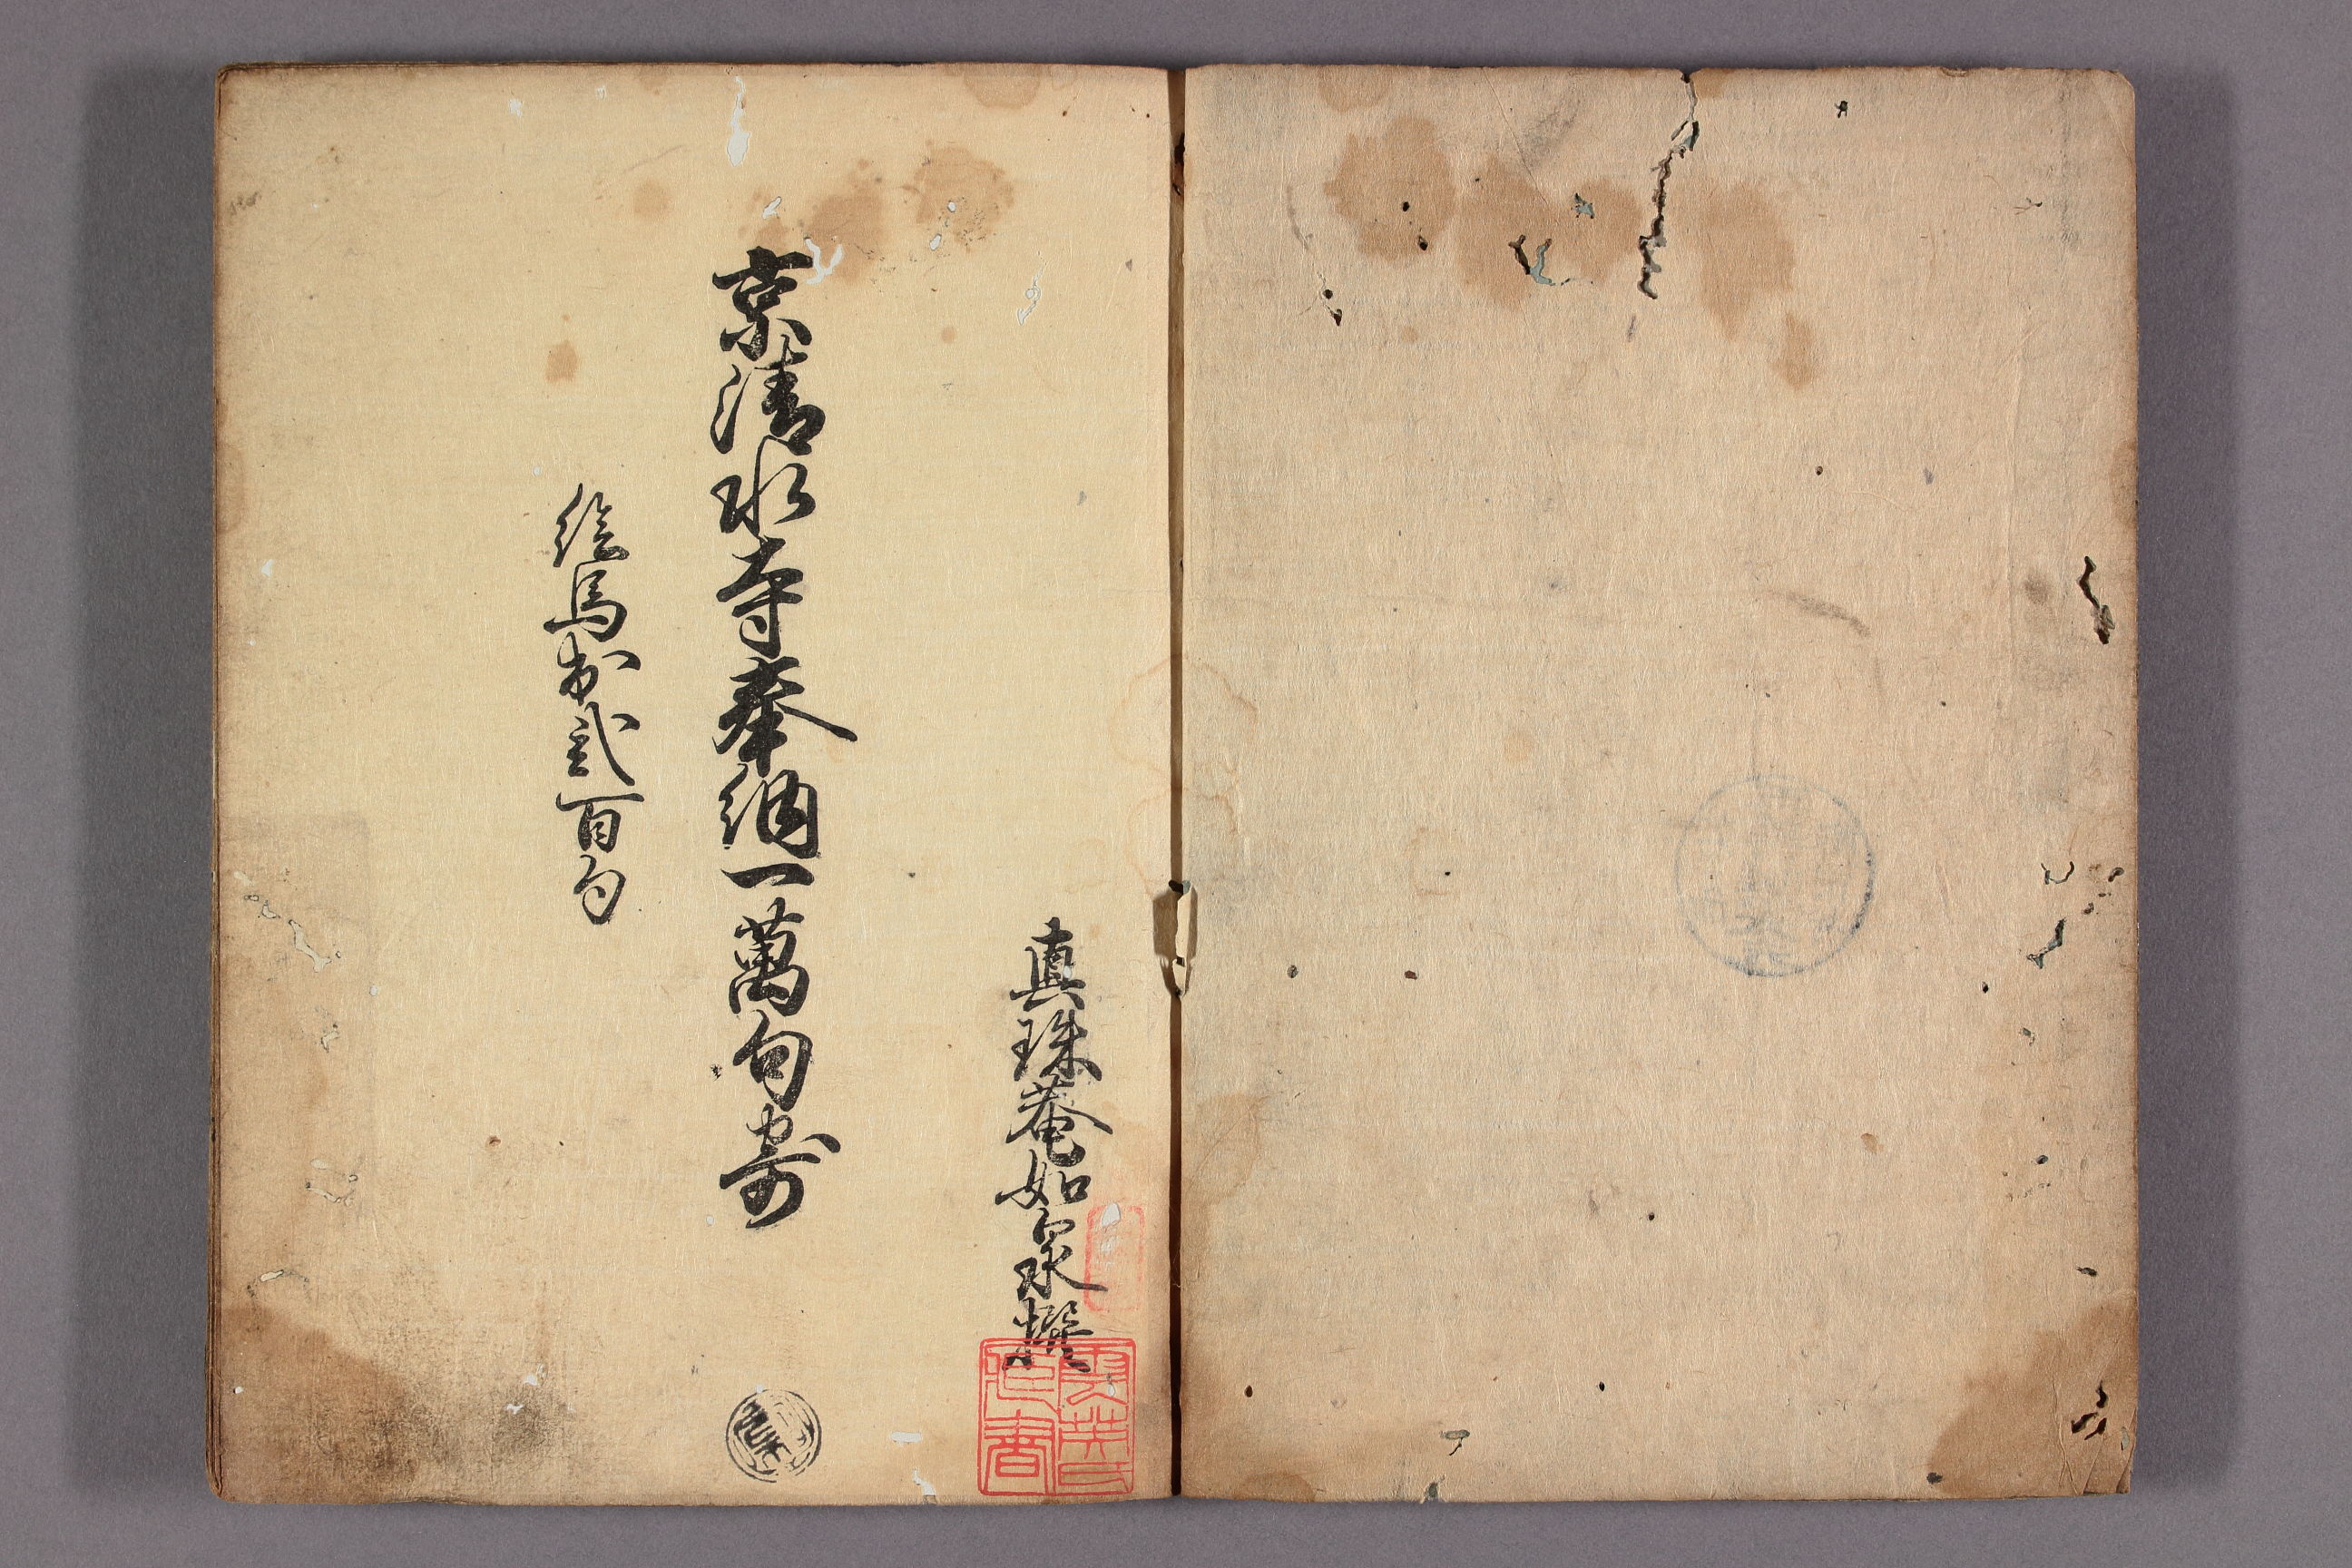 真珠菴如泉撰
京清水寺奉納一萬句寄
絵馬出弐百句